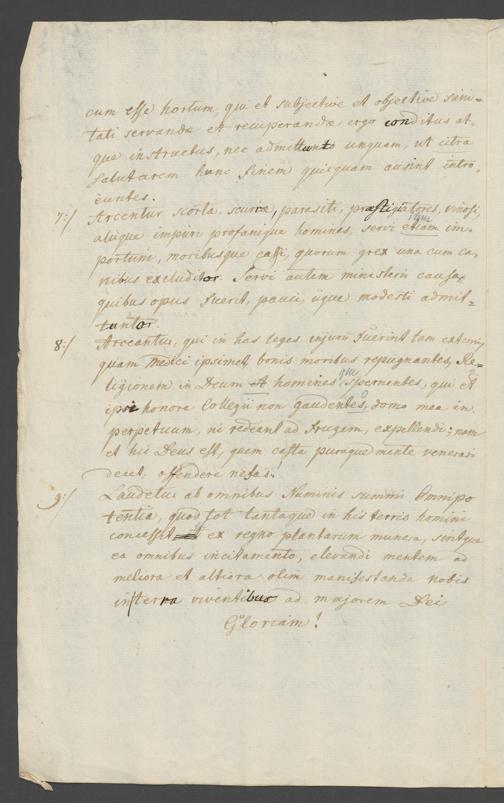 cum esse hortum, qui et subjective et objective sani=
tati servandæ et recuperandæ ergo conditus at-
que instructus, nec admittunto unquam, ut citra
salutarem hunc finem quicquam ausint intro-
ëuntes.
7:/ Arcentur scorta, scurræ, parasiti, præstigiatores, vinosi,
aliique impuri profanique homines, servi etiam im-
portuni, moribusque cassi, quorum grex una cum ca-
nibus excluditor. Servi autem ministerii causa,
quibus opus fuerit, pauci, iique modesti admit-
tuntor.
8:/ Arceantur, qui in has leges injurii fuerint tam externi,
quam Medici ipsimet, bonis moribus repugnantes, Re=
ligionem in Deum et homines spernentes, qui et
ipsi honore Collegii non gaudentes, domo mea in
perpetuum, ni redeant ad frugem, expellendi; nam
et hic Deus est, quem casta puraque mente venerari
decet, offendere nefas!
9:/ Laudetur ab omnibus Numinis summi Omnipo
tentia, quod tot tantaque in his terris homini
concessit ex regno plantarum munera, sintque
ea omnibus incitamento, elevandi mentem ad
meliora et altiora olim manifestanda nobis
in terra viventibus ad majorem Dei
Gloriam!